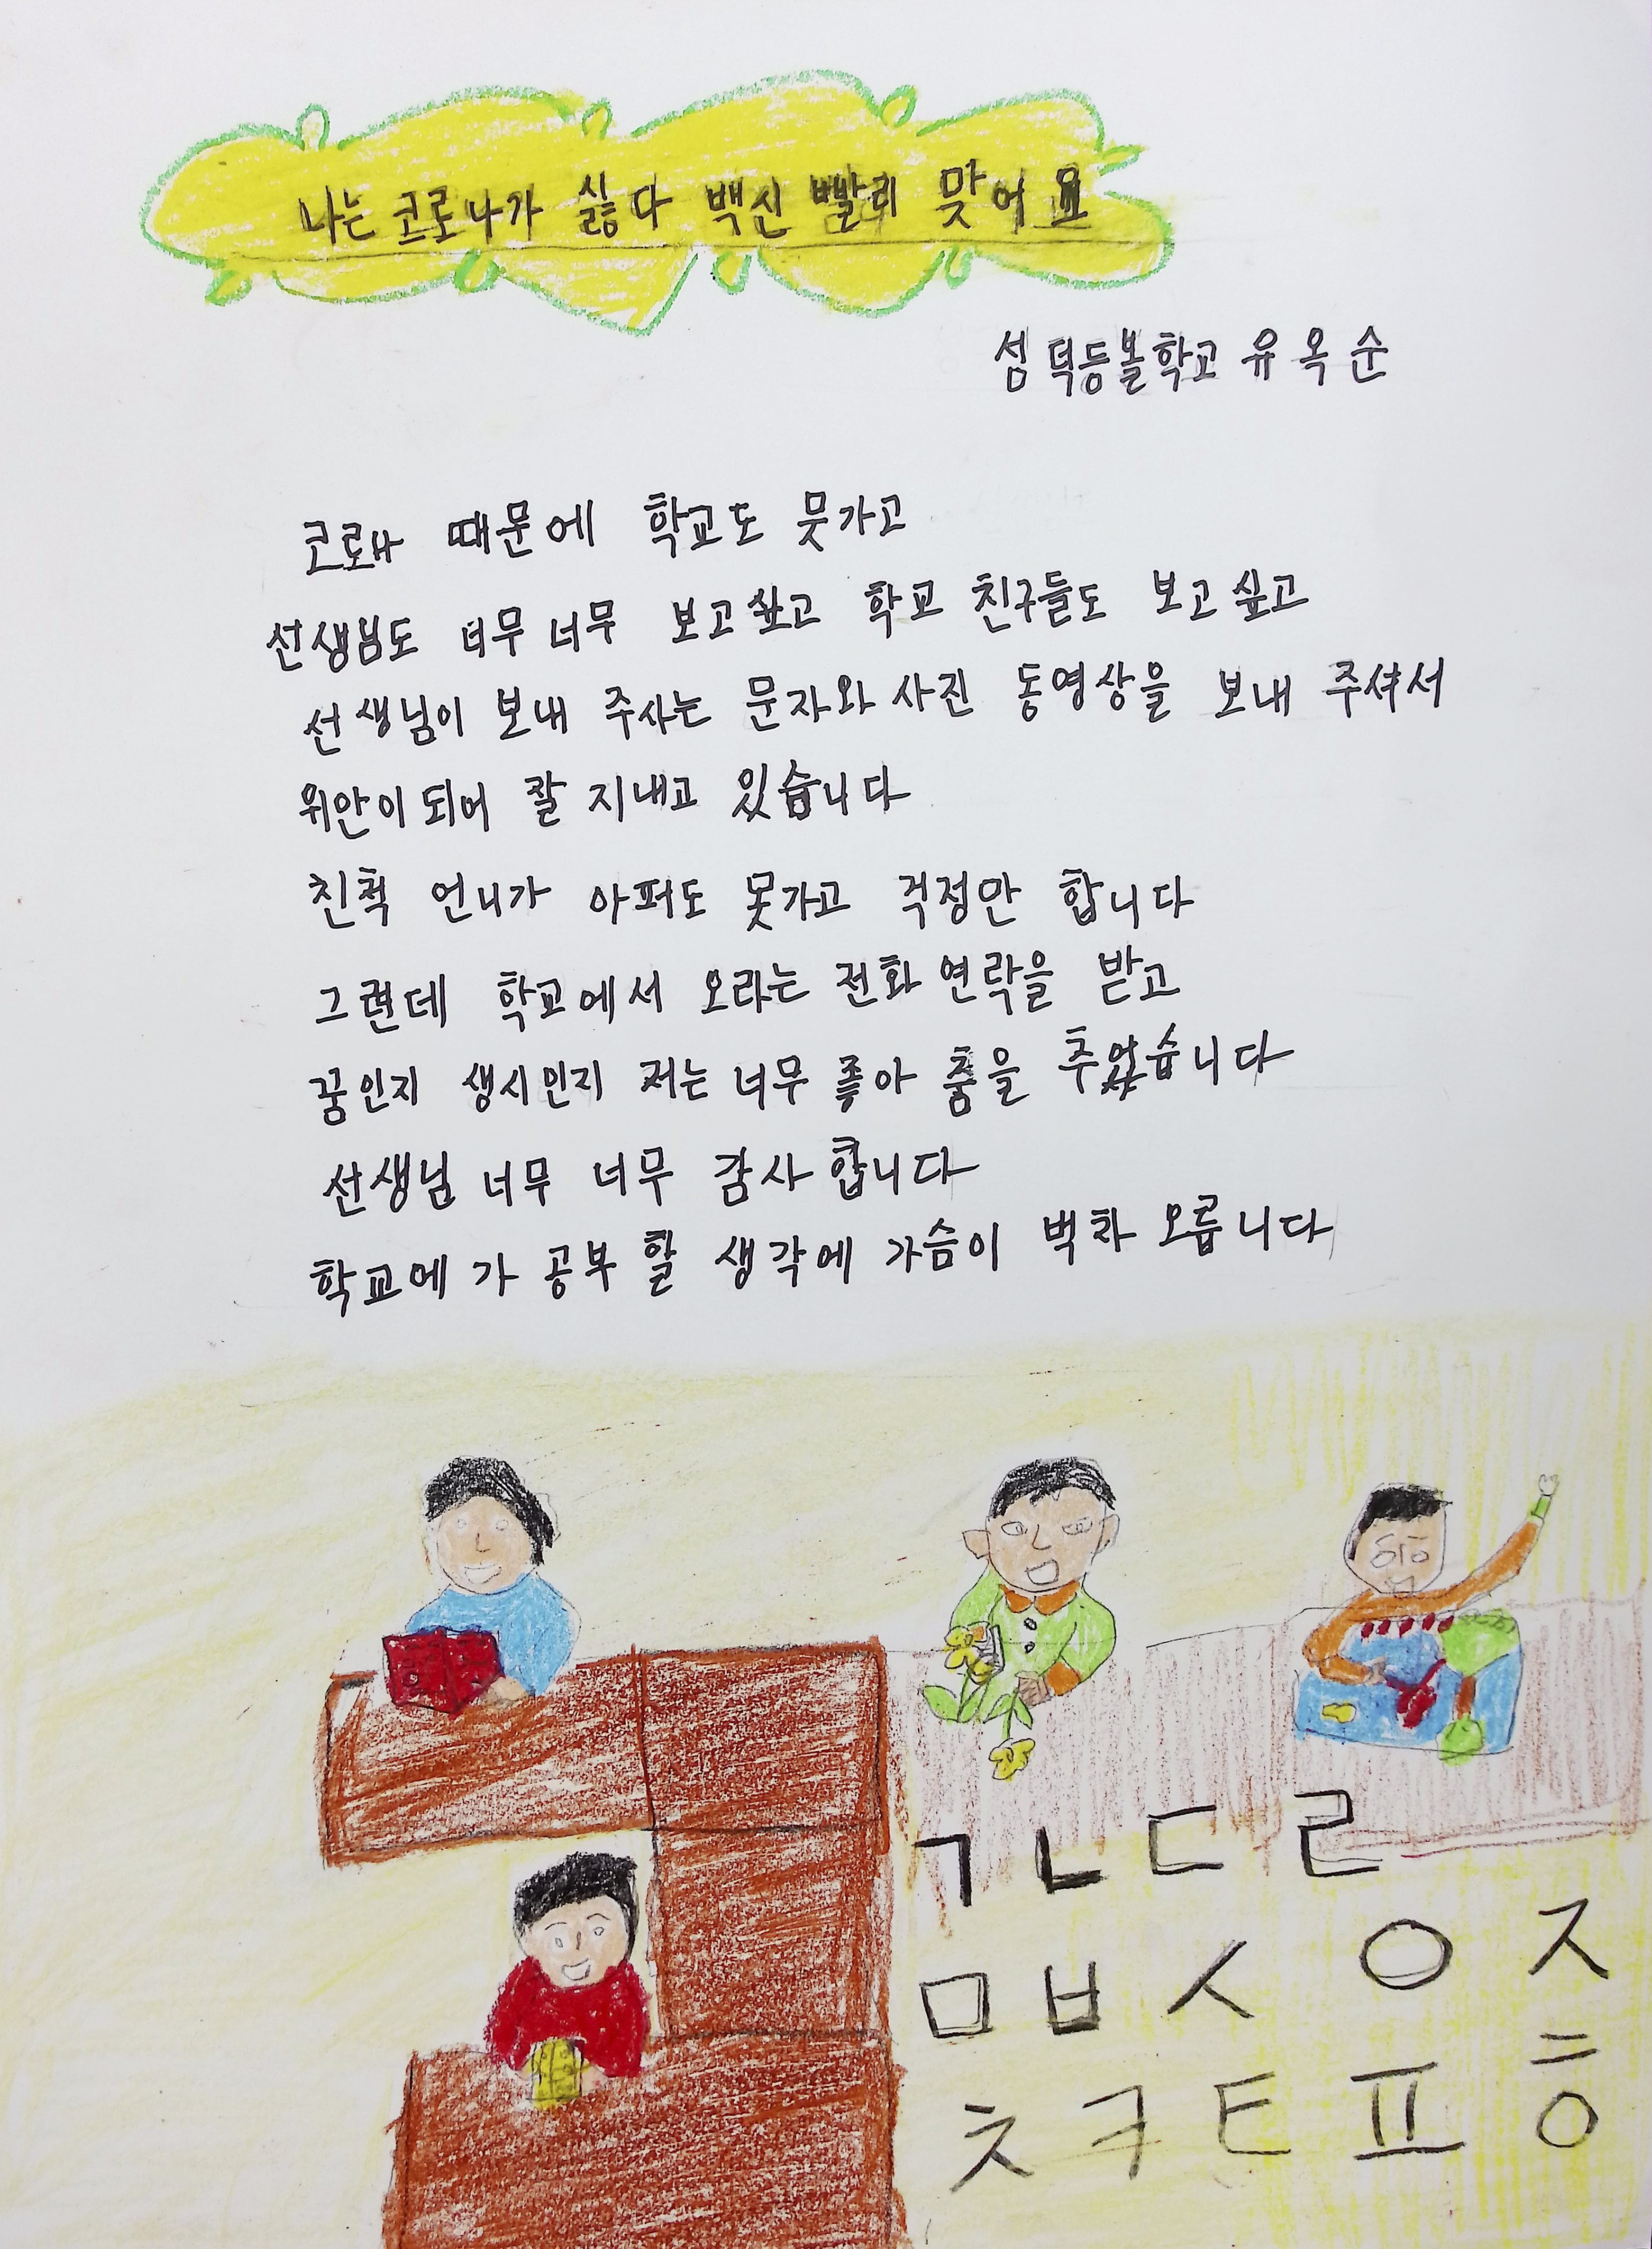 나는 코로나가 싫다 백신 빨리 맞어요
섬 덕등볼학교 유옥순
코로나 때문에 학교도 뭇가고
선생님도 너무 너무 보고싶고 학교 친구들도 보고싶고
선생님이 보내 주사는 문자와 사진 동영상을 보내 주셔서
위안이 되어 잘 지내고 있습니다
친척 언니가 아퍼도 못가고 걱정만 합니다
그런데 학교에서 오라는 전화 연락을 받고
꿈인지 생시인지 저는 너무 좋아 춤을 추었습니다
선생님 너무 너무 감사 합니다
학교에 가 공부 할 생각에 가슴이 벅차 오릅니다
ㄱ ㄴ ㄷ ㄹ
ㅁ ㅂ ㅅ ㅇ ㅈ
ㅊ ㅋ ㅌ ㅍ ㅎ